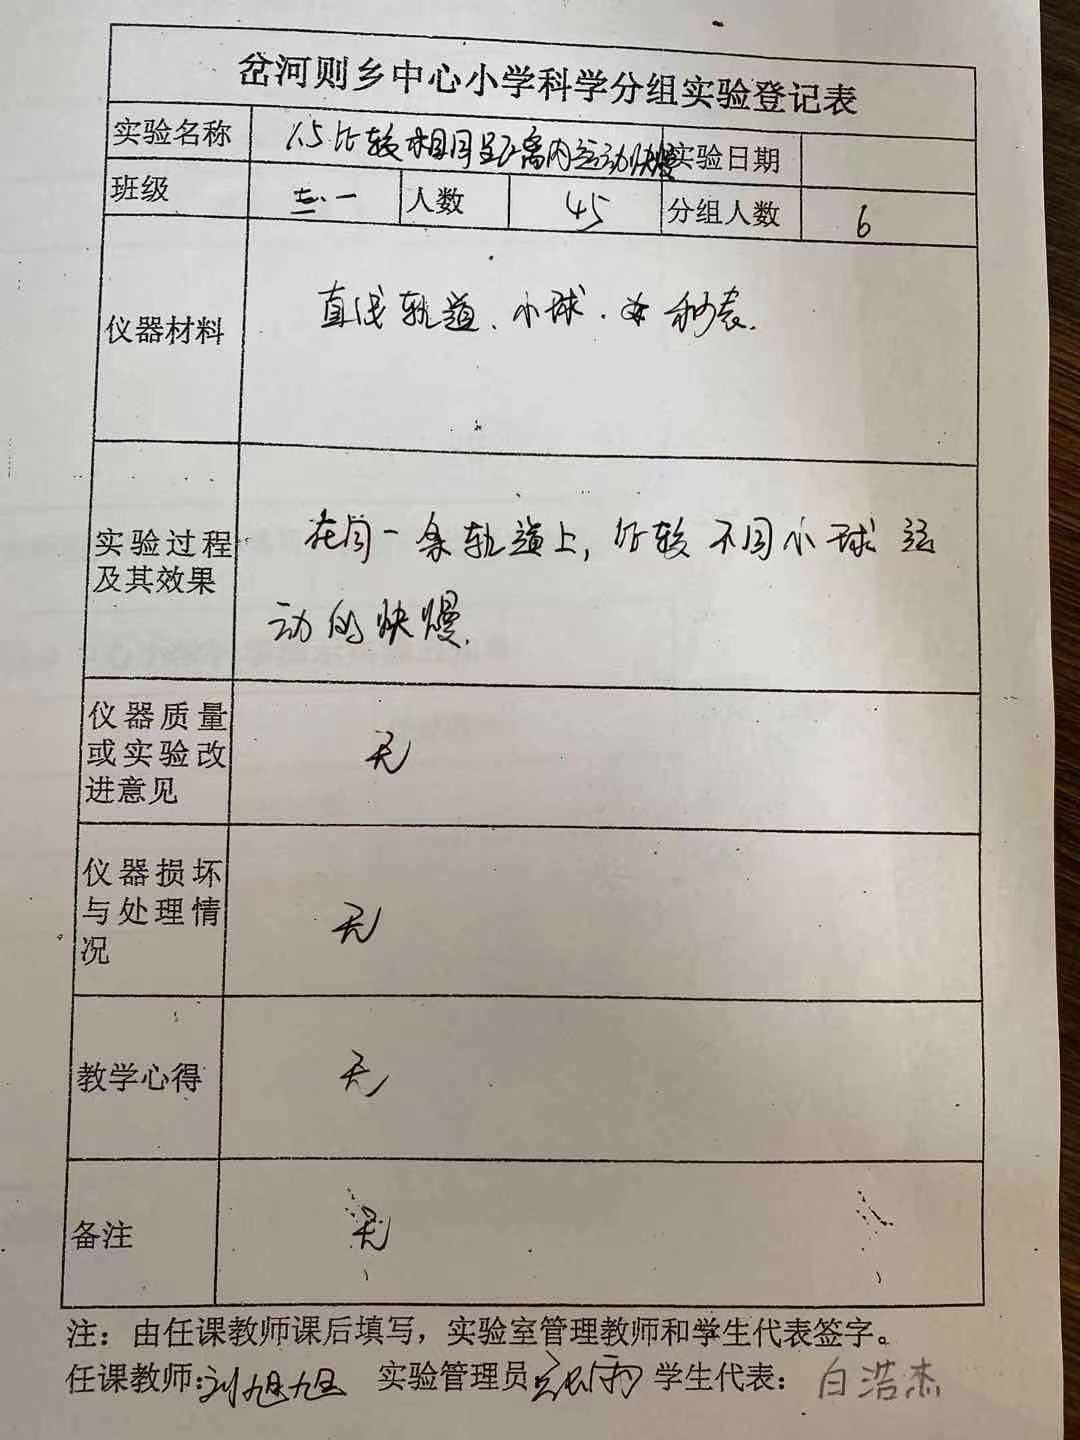 岔河则乡中心小学科学分组实验登记表
实验名称 1.5比较相同距离内运动快慢 实验日期
班级 三.一 人数 45 分组人数 6
仪器材料 直线轨道、小球、秒表.
实验过程及其效果 在同一条轨道上,比较不同小球运
动的快慢.
仪器质量或实验改进意见 无
仪器损坏与处理情况 无
教学心得 无
备注 无
注：由任课教师课后填写，实验室管理教师和学生代表签字。
任课教师:刘旭旭 实验管理员 雨 学生代表：白浩杰